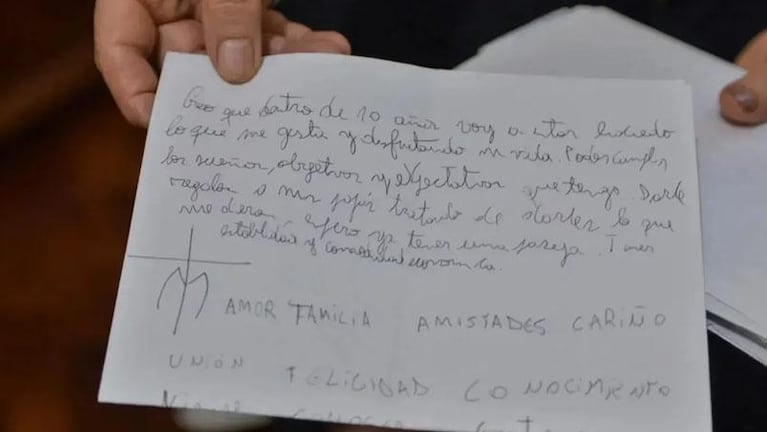 Creo que dentro de 10 años voy a estar haciendo
lo que me gusta y disfrutando mi vida. Poder cumplir
los sueños, objetivos y expectativas que tengo. Darle
regalos a mis papás tratando de darles lo que
me dieron, espero ya tener una pareja. Tener
estabilidad y economica.
AMOR FAMILIA AMISTADES CARIÑO
UNIÓN FELICIDAD CONOCIMIENTO